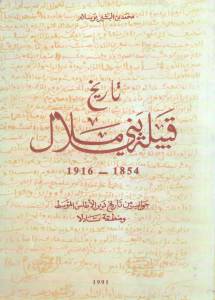 محمد بن البشير بوسلام
تاريخ
قبيلة بني ملال
1854 - 1916
جوانب من تاريخ دير الأطلس المتوسط
ومنطقة تادلا
1991